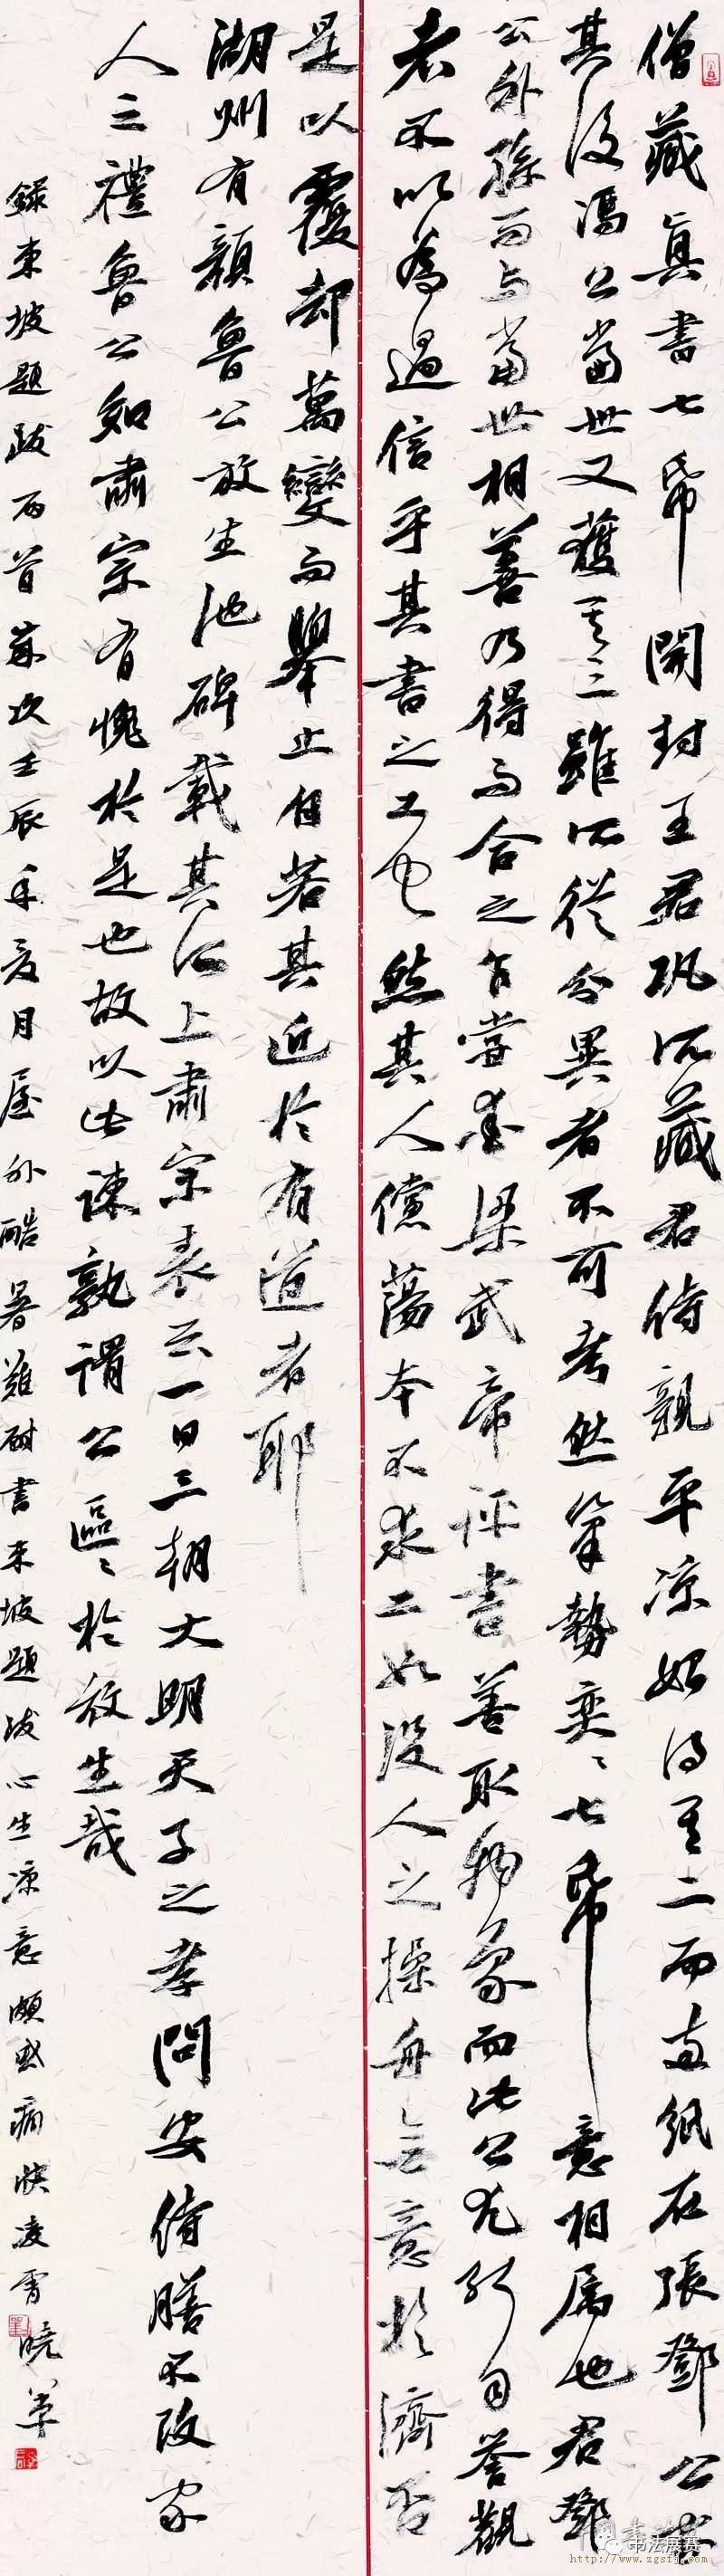 僧藏真書七帋開封王君巩所藏君侍親平凉始得其二而两紙在張鄧公家
其後馮公當世又獲其三雖所從分異者不可考然筆勢奕奕七帋意相属也君鄧
公外孫而与當世相善乃得而合之余嘗愛梁武帝評書善取物象而此公尤能自誉觀
者不以為過信乎其書之工也然其人儻蕩本不求工如没人之操舟無意於濟否
是以覆却萬變而舉止自若其近於有道者耶
湖州有顏魯公放生池碑載其所上肅宗表云一日三朝大明天子之孝問安侍膳不改家
人之禮魯公知肅宗有愧於是也故以此諫孰謂公區區於放生哉
錄東坡題跋两首歲次壬辰年夏月屋外酷暑難耐書東坡題跋心生凉意頗感痛快凌霄曉軍
书法展赛
http://www.zgsfg.com